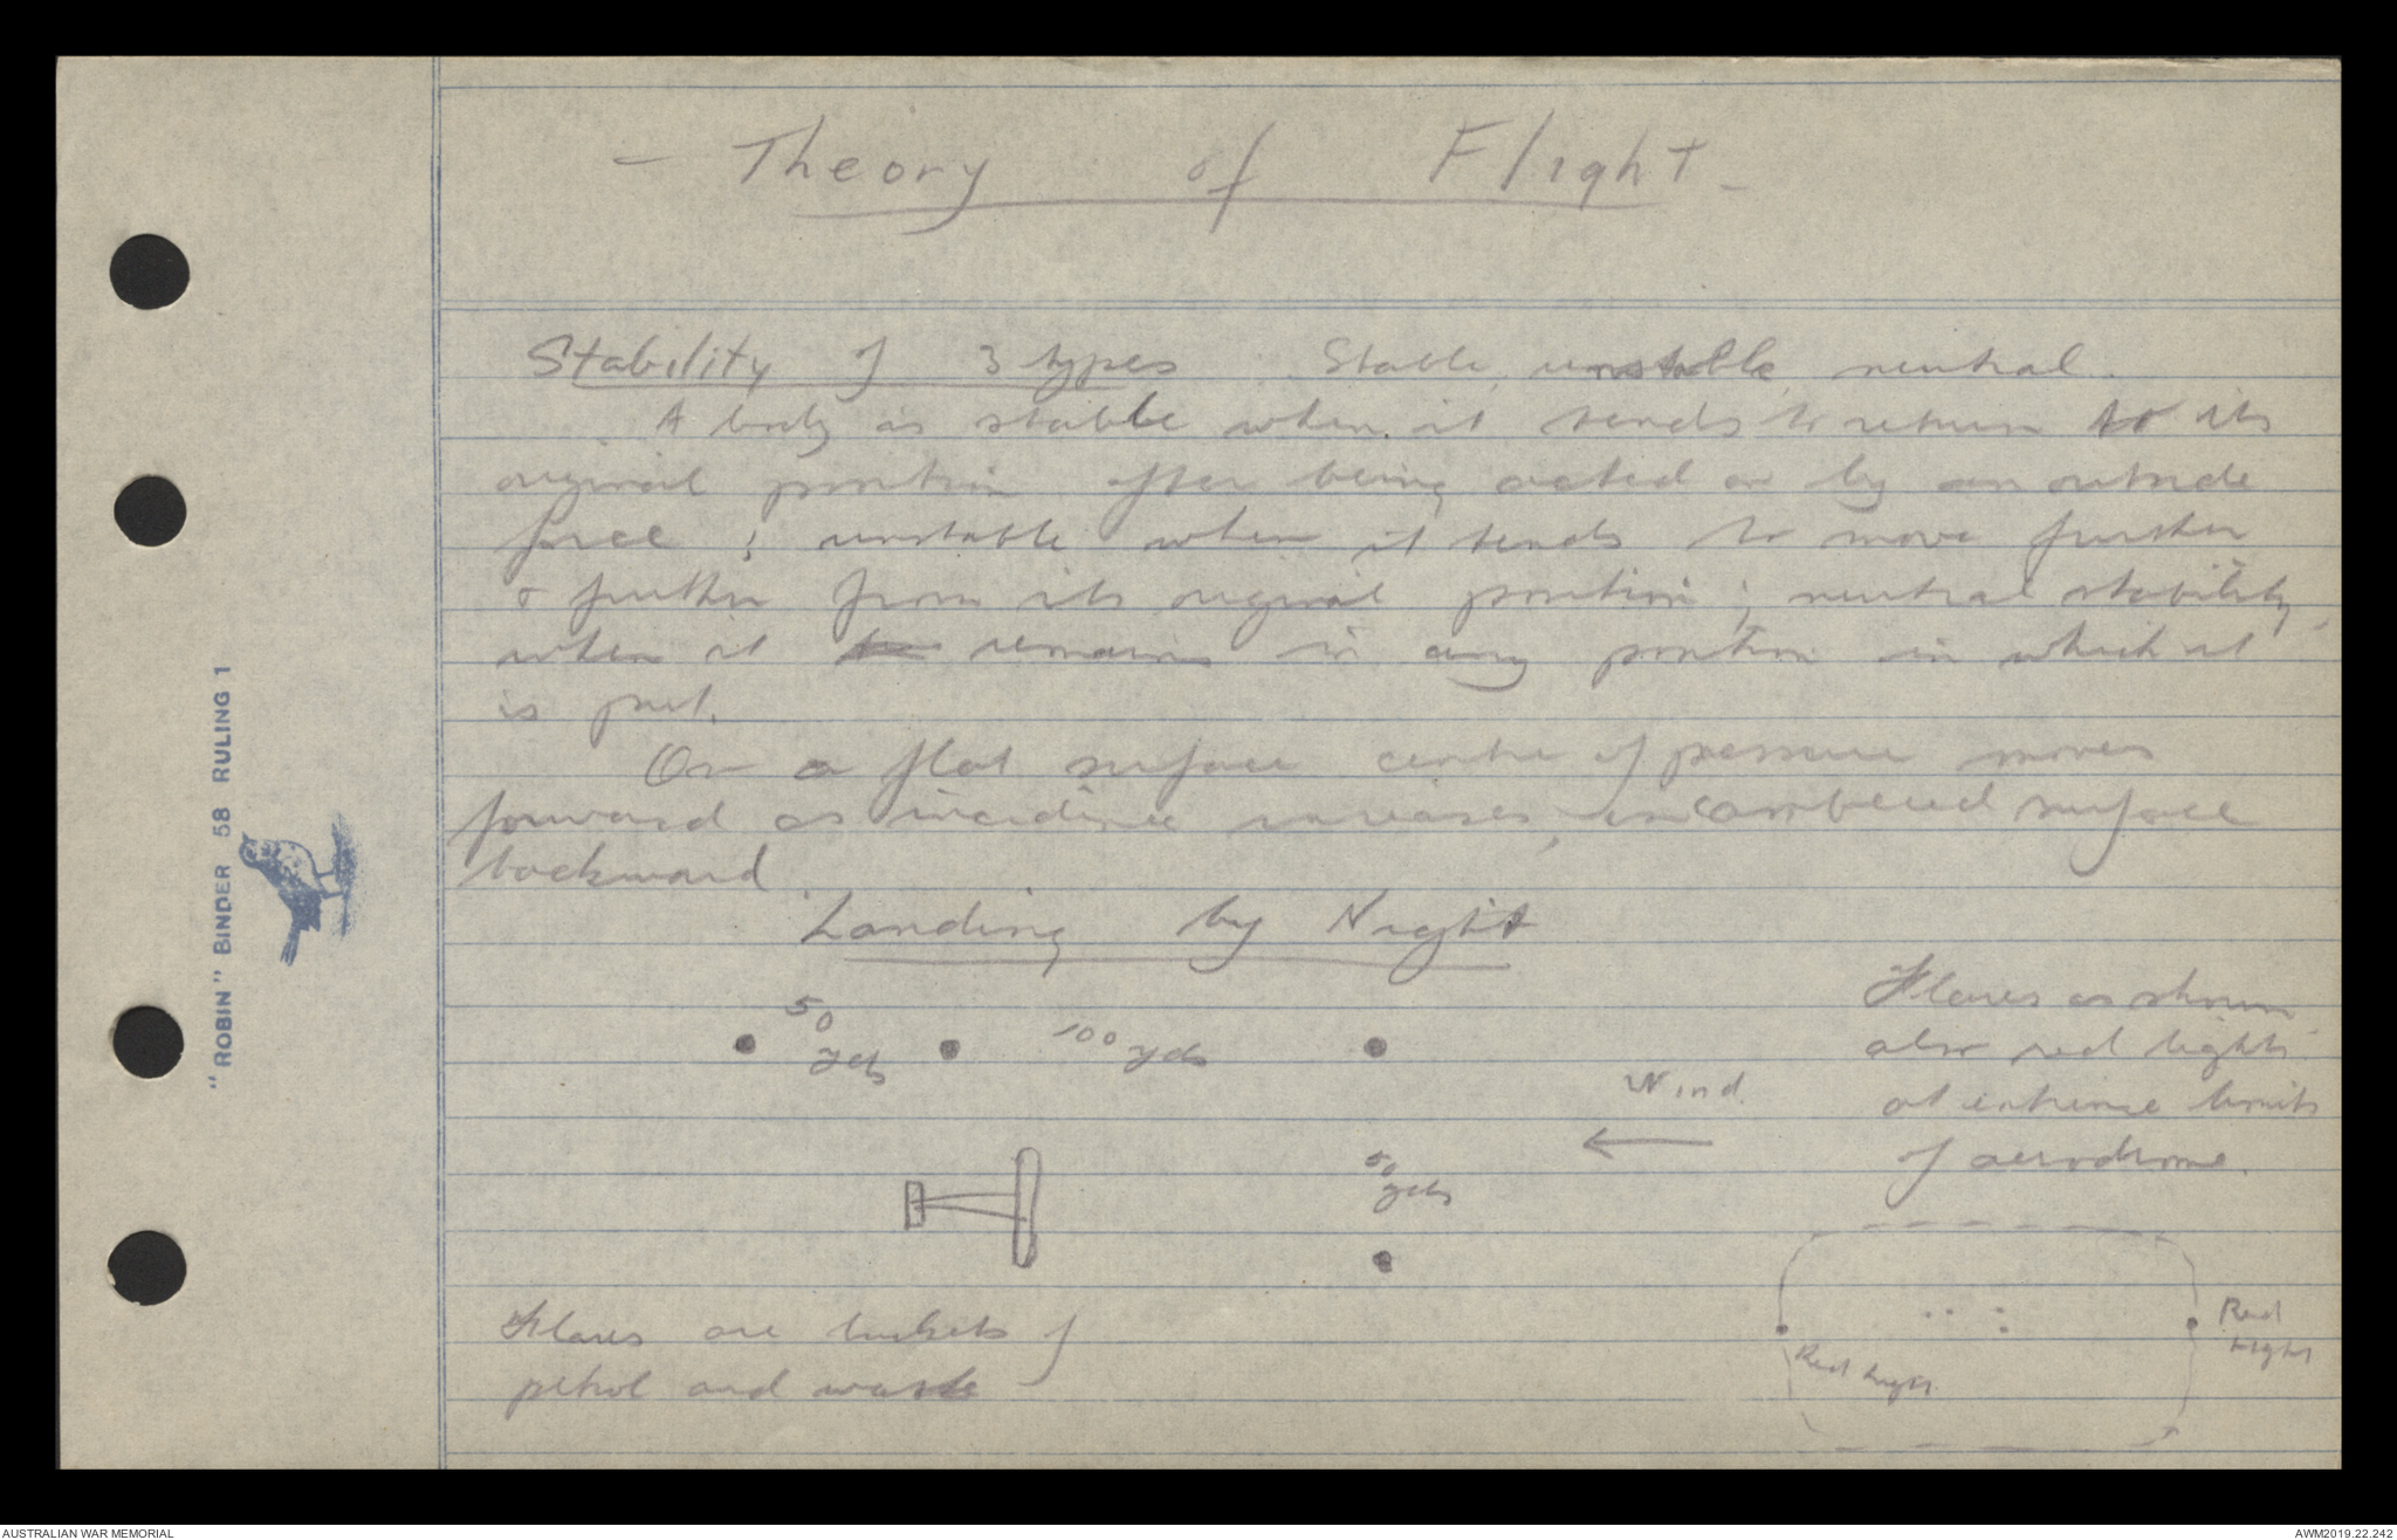 - Theory of Flight -
Stability of 3 types. Stable, unstable, neutral.
A body is stable when it tends to return to its
original position after being acted on by an outside
force; unstable when it tends to move further
& further from its original position; neutral stability,
when it remains in any position in which it
is put.
On a flat surface centre of pressure moves
forward as incidence increases, on cambered surface
backward.
Landing by Night
50 yds 100 yds
Wind.
50 yds
Flares as shown
also red lights
at extreme limits
of aerodrome.
Flares are buckets of
petrol and waste
Red light
Red Light
"ROBIN" BINDER 58 RULING 1
AUSTRALIAN WAR MEMORIAL
AWM2019.22.242